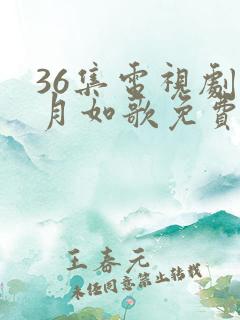 36集電視劇
月如歌免費
王春元
未经同意禁止转载